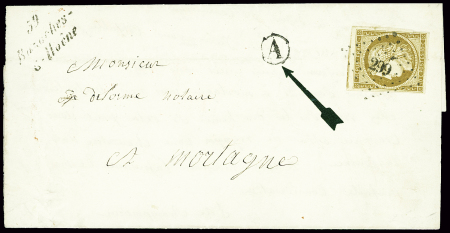 59
Bazoches-
s-Hoëne
A
299
Monsieur
delorme notaire
A mortagne